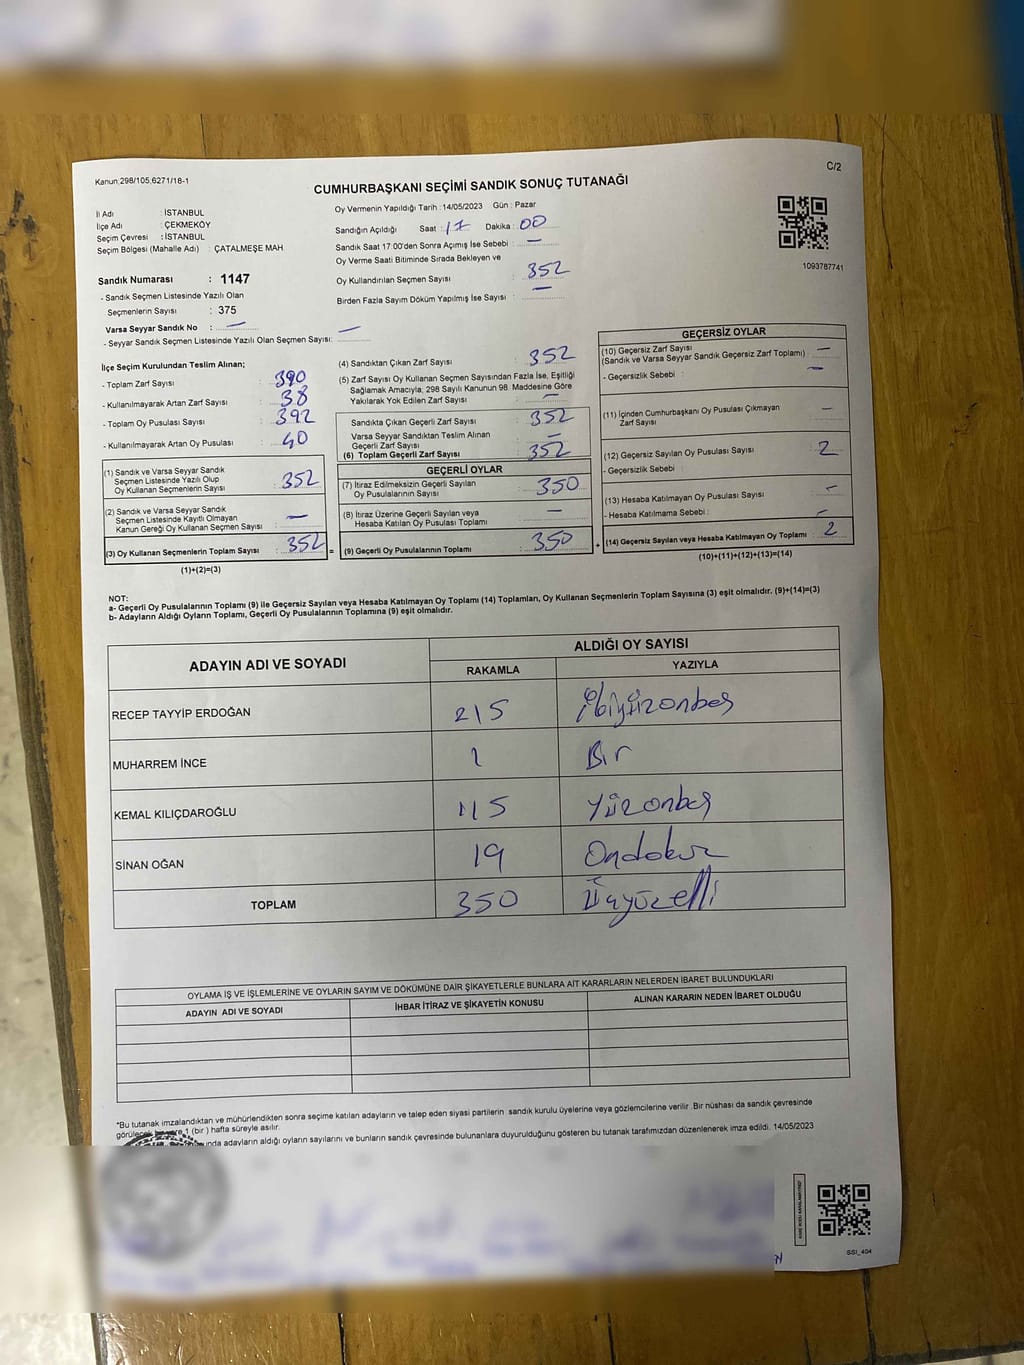 Kanun:298/105;6271/18-1
C/2
CUMHURBAŞKANI SEÇİMİ SANDIK SONUÇ TUTANAĞI
İl Adı : İSTANBUL
İlçe Adı : ÇEKMEKÖY
Seçim Çevresi : İSTANBUL
Seçim Bölgesi (Mahalle Adı) : ÇATALMEŞE MAH
Sandık Numarası : 1147
- Sandık Seçmen Listesinde Yazılı Olan
Seçmenlerin Sayısı : 375
Varsa Seyyar Sandık No : —
- Seyyar Sandık Seçmen Listesinde Yazılı Olan Seçmen Sayısı: —
Oy Vermenin Yapıldığı Tarih : 14/05/2023 Gün : Pazar
Sandığın Açıldığı Saat : 17 Dakika : 00
Sandık Saat 17:00'den Sonra Açımış İse Sebebi : —
Oy Verme Saati Bitiminde Sırada Bekleyen ve
Oy Kullandırılan Seçmen Sayısı : 352
Birden Fazla Sayım Döküm Yapılmış İse Sayısı : —
1093787741
İlçe Seçim Kurulundan Teslim Alınan;
- Toplam Zarf Sayısı : 390
- Kullanılmayarak Artan Zarf Sayısı : 38
- Toplam Oy Pusulası Sayısı : 392
- Kullanılmayarak Artan Oy Pusulası : 40
(1) Sandık ve Varsa Seyyar Sandık
Seçmen Listesinde Yazılı Olup
Oy Kullanan Seçmenlerin Sayısı : 352
(2) Sandık ve Varsa Seyyar Sandık
Seçmen Listesinde Kayıtlı Olmayan
Kanun Gereği Oy Kullanan Seçmen Sayısı : —
(3) Oy Kullanan Seçmenlerin Toplam Sayısı : 352 =
(1)+(2)=(3)
(4) Sandıktan Çıkan Zarf Sayısı : 352
(5) Zarf Sayısı Oy Kullanan Seçmen Sayısından Fazla İse, Eşitliği
Sağlamak Amacıyla, 298 Sayılı Kanunun 98. Maddesine Göre
Yakılarak Yok Edilen Zarf Sayısı : —
Sandıkta Çıkan Geçerli Zarf Sayısı : 352
Varsa Seyyar Sandıktan Teslim Alınan
Geçerli Zarf Sayısı : —
(6) Toplam Geçerli Zarf Sayısı : 352
GEÇERLİ OYLAR
(7) İtiraz Edilmeksizin Geçerli Sayılan
Oy Pusulalarının Sayısı : 350
(8) İtiraz Üzerine Geçerli Sayılan veya
Hesaba Katılan Oy Pusulası Toplamı : —
(9) Geçerli Oy Pusulalarının Toplamı : 350 +
GEÇERSİZ OYLAR
(10) Geçersiz Zarf Sayısı : —
(Sandık ve Varsa Seyyar Sandık Geçersiz Zarf Toplamı)
- Geçersizlik Sebebi : —
(11) İçinden Cumhurbaşkanı Oy Pusulası Çıkmayan
Zarf Sayısı : —
(12) Geçersiz Sayılan Oy Pusulası Sayısı : 2
- Geçersizlik Sebebi :
(13) Hesaba Katılmayan Oy Pusulası Sayısı : —
- Hesaba Katılmama Sebebi : —
(14) Geçersiz Sayılan veya Hesaba Katılmayan Oy Toplamı : 2
(10)+(11)+(12)+(13)=(14)
NOT:
a- Geçerli Oy Pusulalarının Toplamı (9) ile Geçersiz Sayılan veya Hesaba Katılmayan Oy Toplamı (14) Toplamları, Oy Kullanan Seçmenlerin Toplam Sayısına (3) eşit olmalıdır. (9)+(14)=(3)
b- Adayların Aldığı Oyların Toplamı, Geçerli Oy Pusulalarının Toplamına (9) eşit olmalıdır.
ADAYIN ADI VE SOYADI ALDIĞI OY SAYISI
RAKAMLA YAZIYLA
RECEP TAYYİP ERDOĞAN 215 İkiyüzonbeş
MUHARREM İNCE 1 Bir
KEMAL KILIÇDAROĞLU 115 Yüzonbeş
SİNAN OĞAN 19 Ondokuz
TOPLAM 350 Üçyüzelli
OYLAMA İŞ VE İŞLEMLERİNE VE OYLARIN SAYIM VE DÖKÜMÜNE DAİR ŞİKAYETLERLE BUNLARA AİT KARARLARIN NELERDEN İBARET BULUNDUKLARI
ADAYIN ADI VE SOYADI İHBAR İTİRAZ VE ŞİKAYETİN KONUSU ALINAN KARARIN NEDEN İBARET OLDUĞU
*Bu tutanak imzalandıktan ve mühürlendikten sonra seçime katılan adayların ve talep eden siyasi partilerin sandık kurulu üyelerine veya gözlemcilerine verilir .Bir nüshası da sandık çevresinde
görülecek bir yere 1 (bir ) hafta süreyle asılır.
adayların aldığı oyların sayılarını ve bunların sandık çevresinde bulunanlara duyurulduğunu gösteren bu tutanak tarafımızdan düzenlenerek imza edildi. 14/05/2023
SSI_404